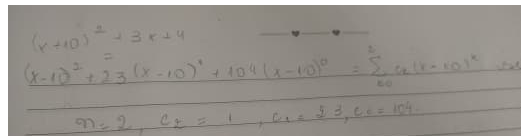 (x+10)² + 3x+4
=
(x-10)² + 23(x-10)¹ + 104(x-10)⁰ = Σ cₖ(x-10)ᵏ
n=2, c₂ = 1, c₁ = 23, c₀ = 104.